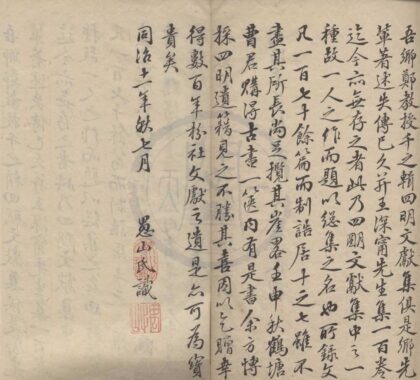 吾鄉鄭教授千之輯四明文獻集俟是鄉先
輩著述失傳已久并王深甯先生集一百卷
迄今亦無存之者此乃四明文獻集中之一
種故一人之作而題以總集之名也所錄文
凡一百七十餘篇而制誥居十之七雖不
盡其所長尚足攬其崖略壬申秋鶴塘
曹君購得古書一篋內有是書余方博
採四明遺籍見之不勝其喜因以乞贈幸
得數百年枌社文獻之遺是亦可為寶
貴矣
同治十一年秋七月 愚山氏識